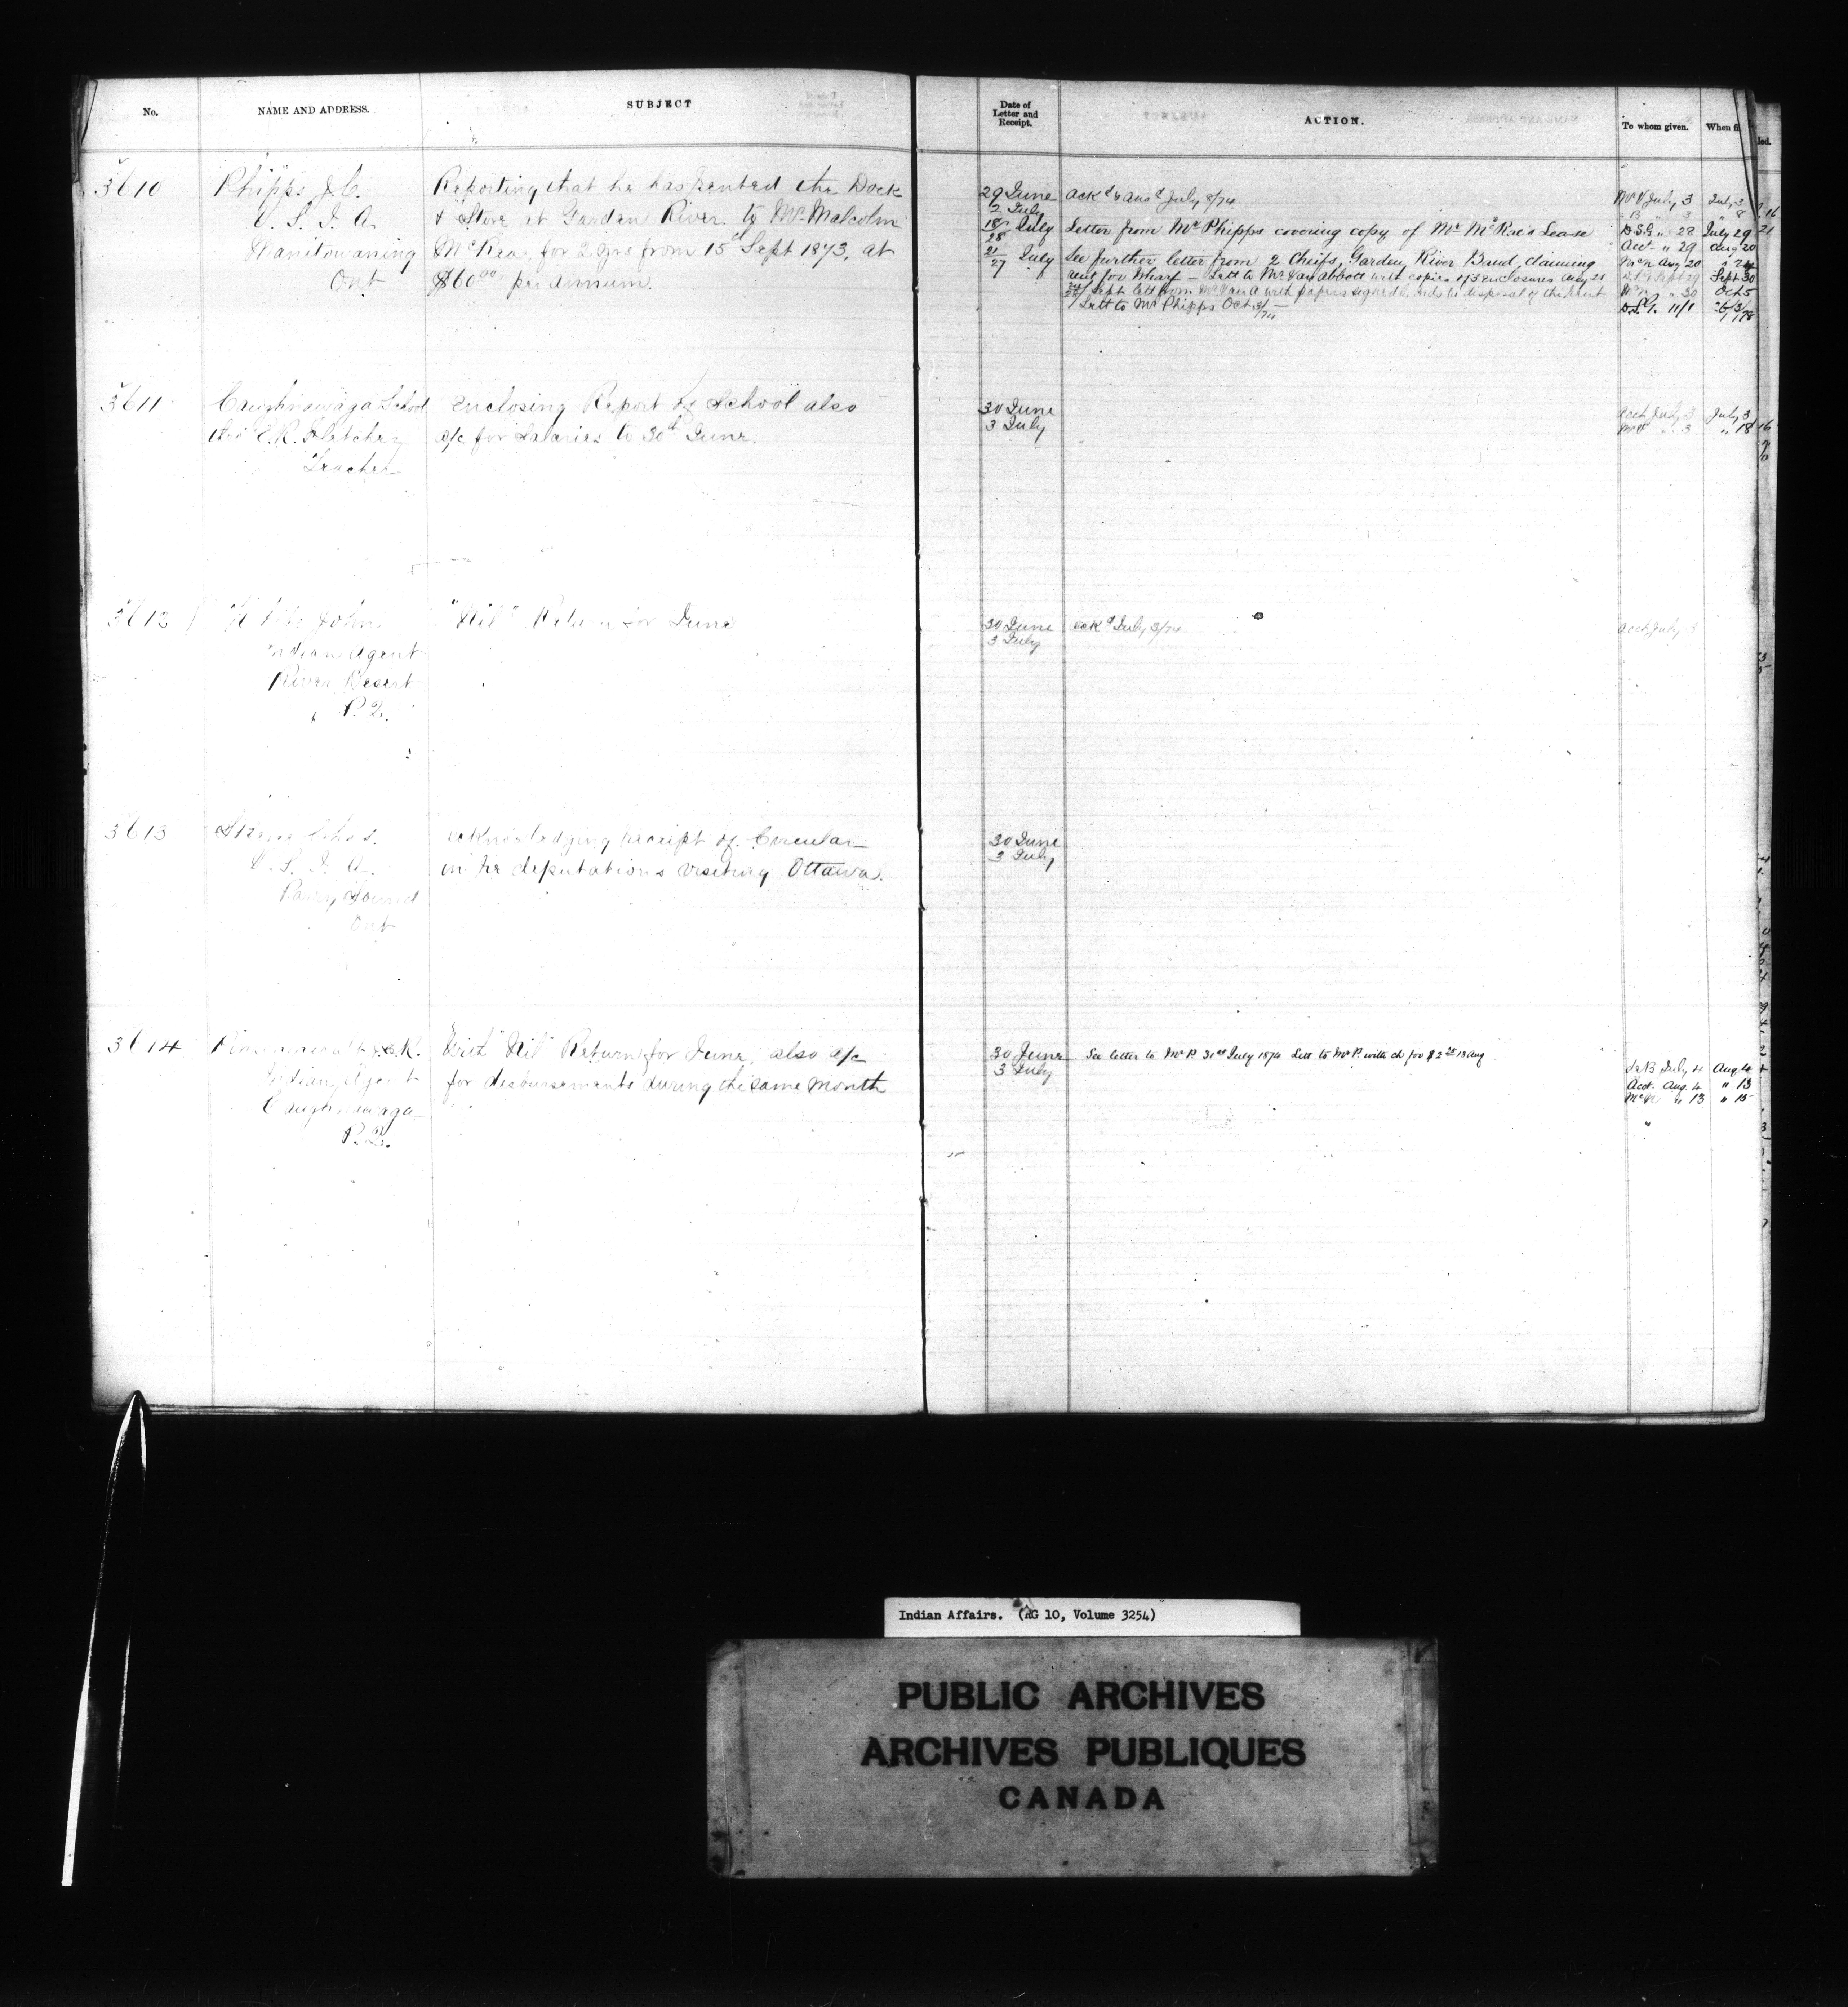 No.
NAME AND ADDRESS.
SUBJECT
Date of
Letter and
Receipt.
ACTION.
To whom given.
When fi
led.
3610
Phipps J.C.
V. S. I. A.
Manitowaning
Ont
Reporting that he has rented the Dock
& Store at Garden River to Mr Malcolm
McRea, for 2 yrs from 15th Sept 1873, at
$60.00 per annum.
29 June
2 July
18/28 July
21/27 July
Ackd & Ansd July 8/74
Letter from Mr Phipps covering copy of Mr McRae's Lease
See further letter from 2 Cheifs, Garden River Band, claiming
rent for Wharf — Lett to Mr Van Abbott with copies of 3 enclosures Aug 21
Sept lett from Mr Van A with papers signed disposal of the rent
/ Lett to Mr Phipps Oct
July 3 July 3
" B " 3 " 8
D.S.G. " 28 July 29
Acct " 29 Aug 20
McN Aug 20 " 24
Sept 29 Sept 30
" 30 Oct 5
D.S.G. 11/1
3611
Caughnawaga School
E.R. Fletcher
Teacher
Enclosing Report of School also
a/c for Salaries to 30th June.
30 June
3 July
Acct July 3 July 3
" 3 " 18
3612
John
Indian Agent
River Desert
P.Q.
"Nil" Return for June
30 June
3 July
Ackd July 3/74
Acct July 3
3613
Skene Chas.
V. S. I. A.
Parry Sound
Ont
Acknowledging receipt of Circular
in re deputations visiting Ottawa.
30 June
3 July
3614
Pinsonneault J.E.R.
Indian Agent
Caughnawaga
P.Q.
With "Nil" Return for June, also a/c
for disbursements during the same month
30 June
3 July
See letter to Mr P. 31st July 1874 Lett to Mr P. with ch for $2 13 Aug
July 4 Aug 4
Acct. Aug. 4 " 13
McN " 13 " 15
Indian Affairs. (RG 10, Volume 3254)
PUBLIC ARCHIVES
ARCHIVES PUBLIQUES
CANADA